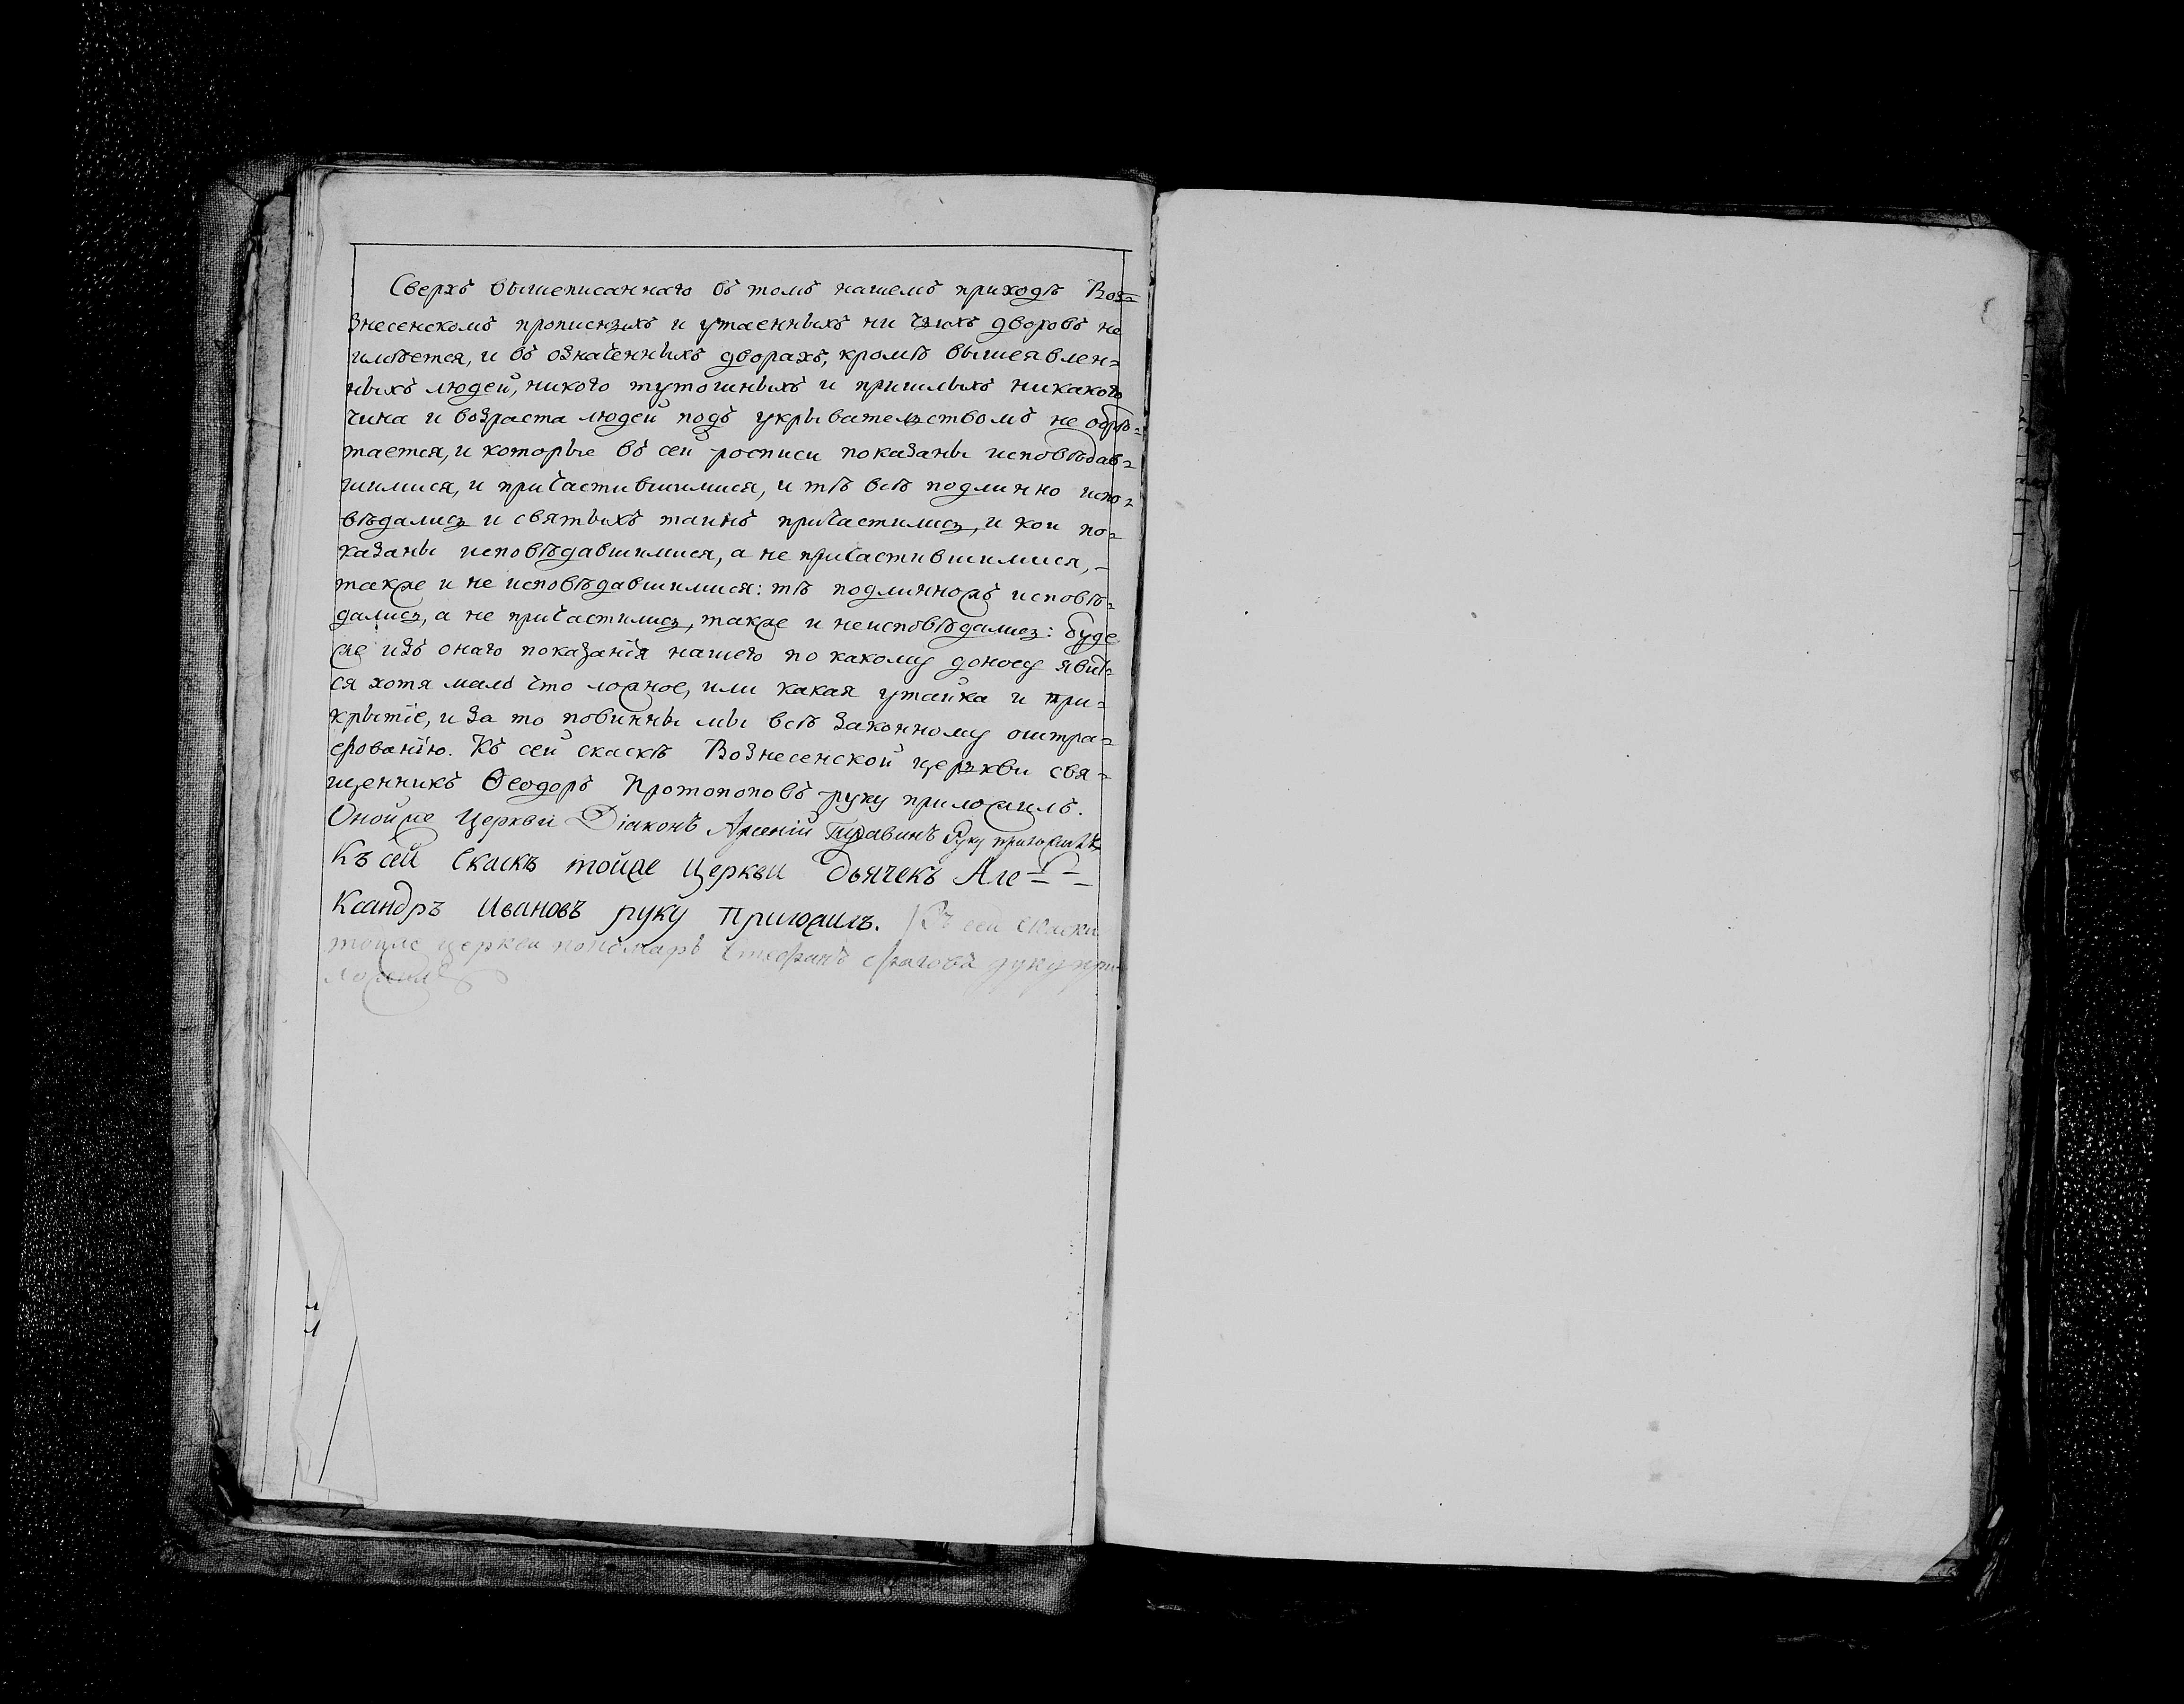 Сверхъ вышеписаннаго въ томъ нашемъ приходѣ Воз=
знесенскомъ прописныхъ и утаенныхъ ни чьихъ дворовъ не
имѣется, и въ означенныхъ дворахъ, кромѣ вышеявлен=
ныхъ людей, никого тутошныхъ и пришлыхъ никакого
чина и возраста людей подъ укрывательствомъ не обрѣ=
тается, и которые въ сей росписи показаны исповѣдав=
шимися, и причастившимися, и тѣ всѣ подлинно испо=
вѣдались и святыхъ таинъ причастились, и кои по=
казаны исповѣдавшимися, а не причастившимися,-
также и не исповѣдавшимися: тѣ подлинножъ исповѣ=
дались, а не причастились, также и неисповѣдались: буде
же изъ онаго показанїя нашего по какому доносу явит=
ся хотя мало что ложное, или какая утайка и при=
крытїе, и за то повинны мы всѣ законному оштра=
фованїю. Къ сей скаскѣ Вознесенской церькви свя=
щенникъ Ѳеодоръ Протопоповъ руку приложилъ.
Онойже Церкви Дїаконъ Арсенїй руку приложилъ
Къ сей Скаскѣ тойже Церкви Дьячекъ Але=
Ксандръ Ивановъ руку Приложилъ. Къ сей скаски
тойже церкви пономарь Стефанъ руку при
ложилъ